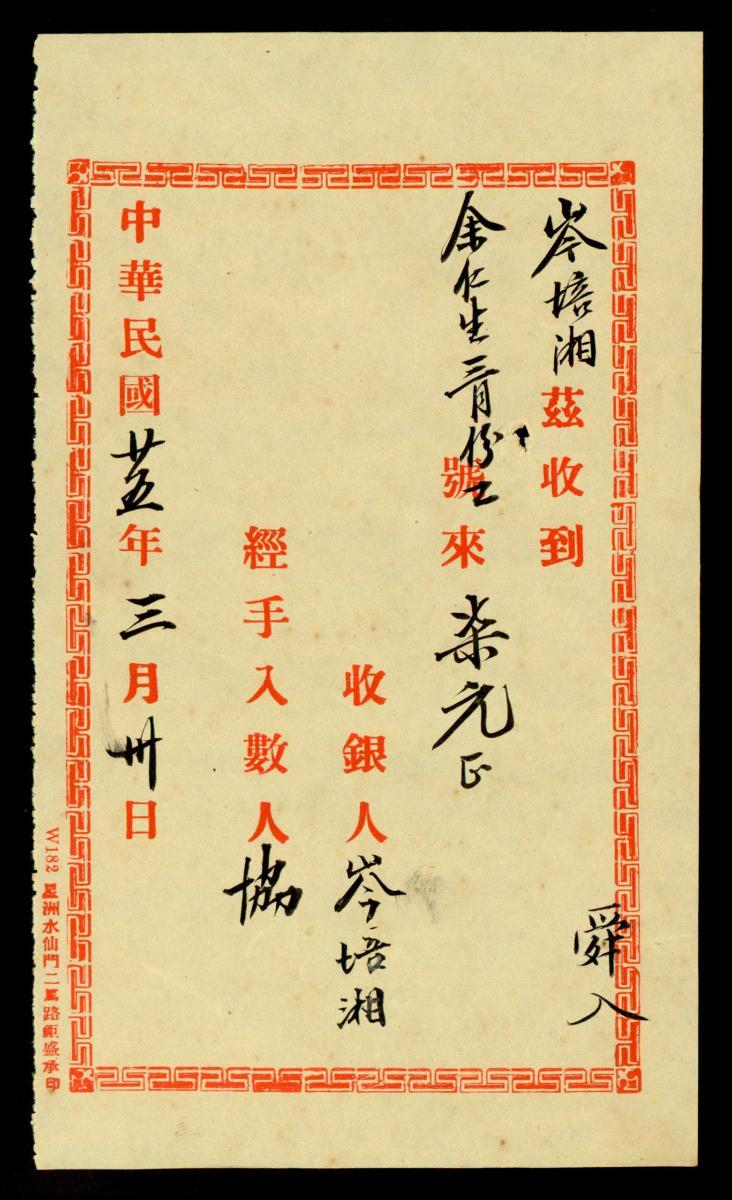 岑培湘茲收到
余仁生三月份工號來柒元正
收銀人岑培湘
經手入數人協
中華民國廿五年三月卅日
舜入
W182 星洲水仙門二馬路鉅盛承印